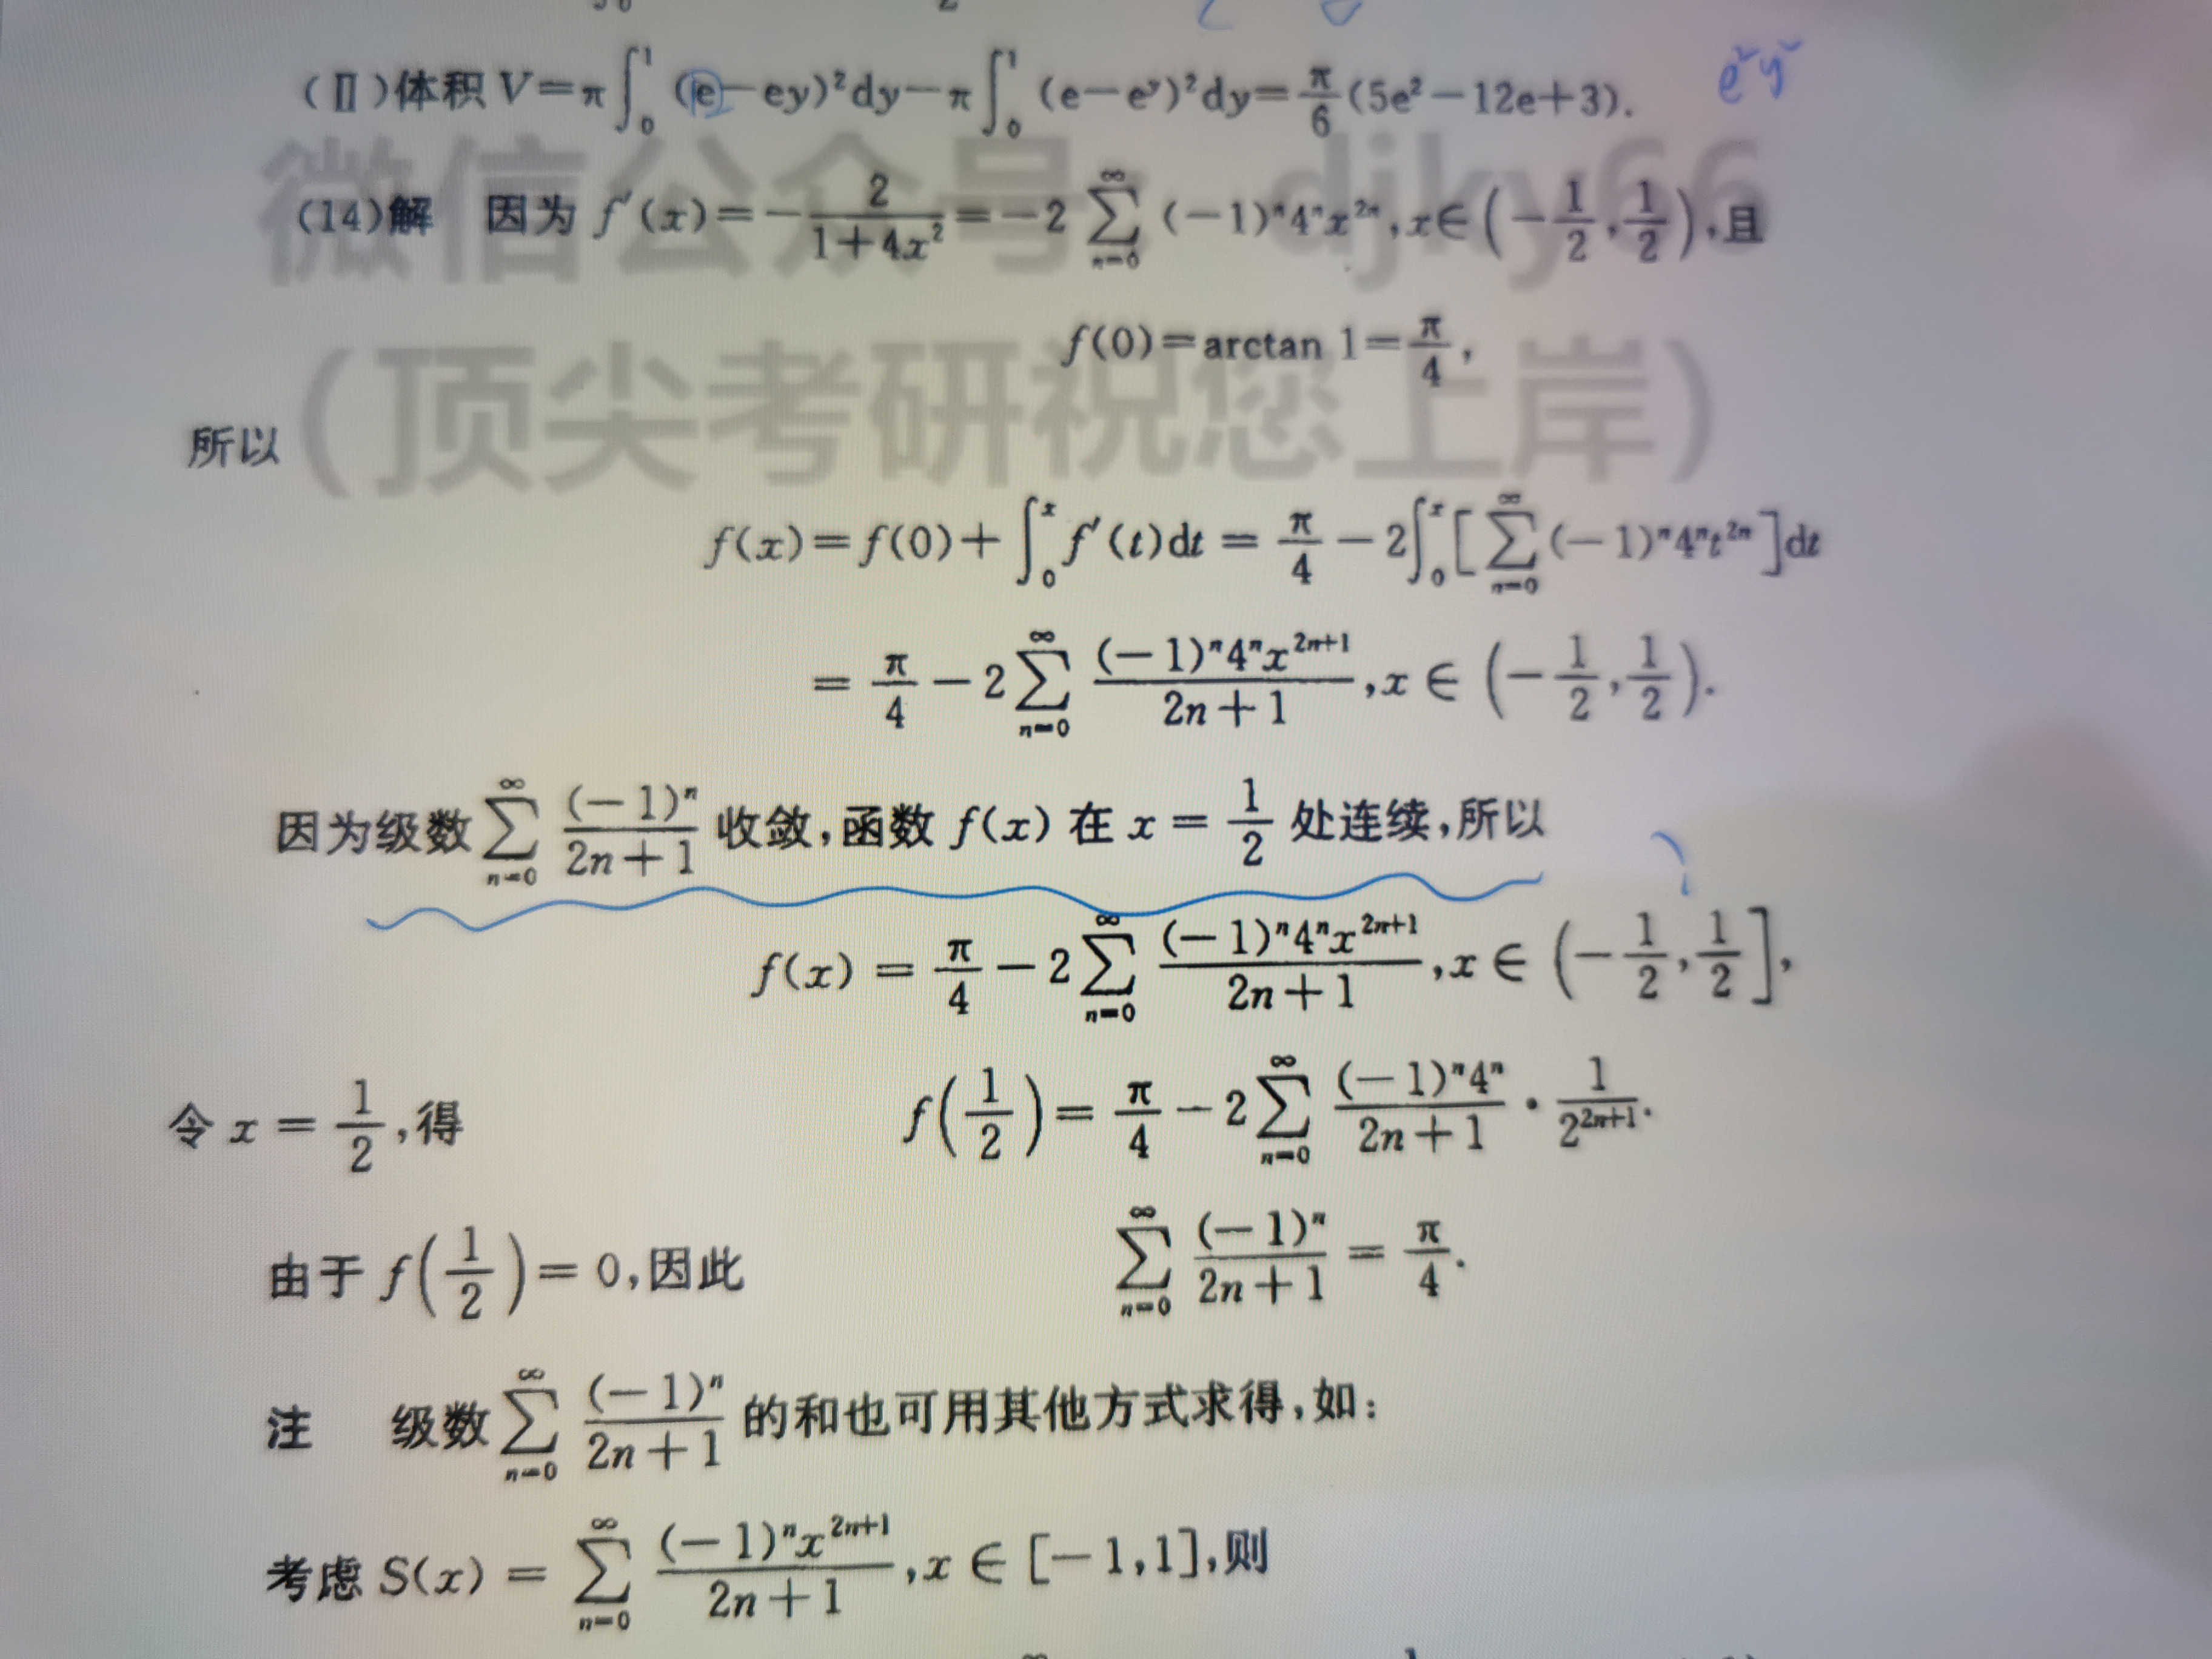 (Ⅱ)体积 V=π∫₀¹(e-ey)²dy-π∫₀¹(e-e^y)²dy=π/6(5e²-12e+3). e²y²
微信公众号:djky66
(14)解 因为 f′(x)=-2/(1+4x²)=-2∑_{n=0}^{∞}(-1)ⁿ4ⁿx²ⁿ,x∈(-1/2,1/2),且
f(0)=arctan 1=π/4,
(顶尖考研祝您上岸)
所以
f(x)=f(0)+∫₀ˣf′(t)dt=π/4-2∫₀ˣ[∑_{n=0}^{∞}(-1)ⁿ4ⁿt²ⁿ]dt
=π/4-2∑_{n=0}^{∞}(-1)ⁿ4ⁿx^{2n+1}/(2n+1),x∈(-1/2,1/2).
因为级数∑_{n=0}^{∞}(-1)ⁿ/(2n+1)收敛,函数 f(x)在 x=1/2处连续,所以
f(x)=π/4-2∑_{n=0}^{∞}(-1)ⁿ4ⁿx^{2n+1}/(2n+1),x∈(-1/2,1/2],
令 x=1/2,得 f(1/2)=π/4-2∑_{n=0}^{∞}(-1)ⁿ4ⁿ/(2n+1)·1/2^{2n+1}.
由于 f(1/2)=0,因此 ∑_{n=0}^{∞}(-1)ⁿ/(2n+1)=π/4.
注 级数∑_{n=0}^{∞}(-1)ⁿ/(2n+1)的和也可用其他方式求得,如:
考虑 S(x)=∑_{n=0}^{∞}(-1)ⁿx^{2n+1}/(2n+1),x∈[-1,1],则